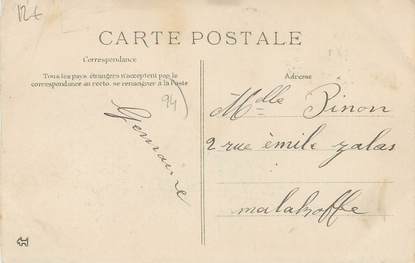 12€
CARTE POSTALE
Correspondance
Tous les pays étrangers n'acceptent pas la
correspondance au recto. se renseigner à la Poste
94
Germaine
Adresse
Mdlle Pinon
2 rue èmile zalas
malakoffe